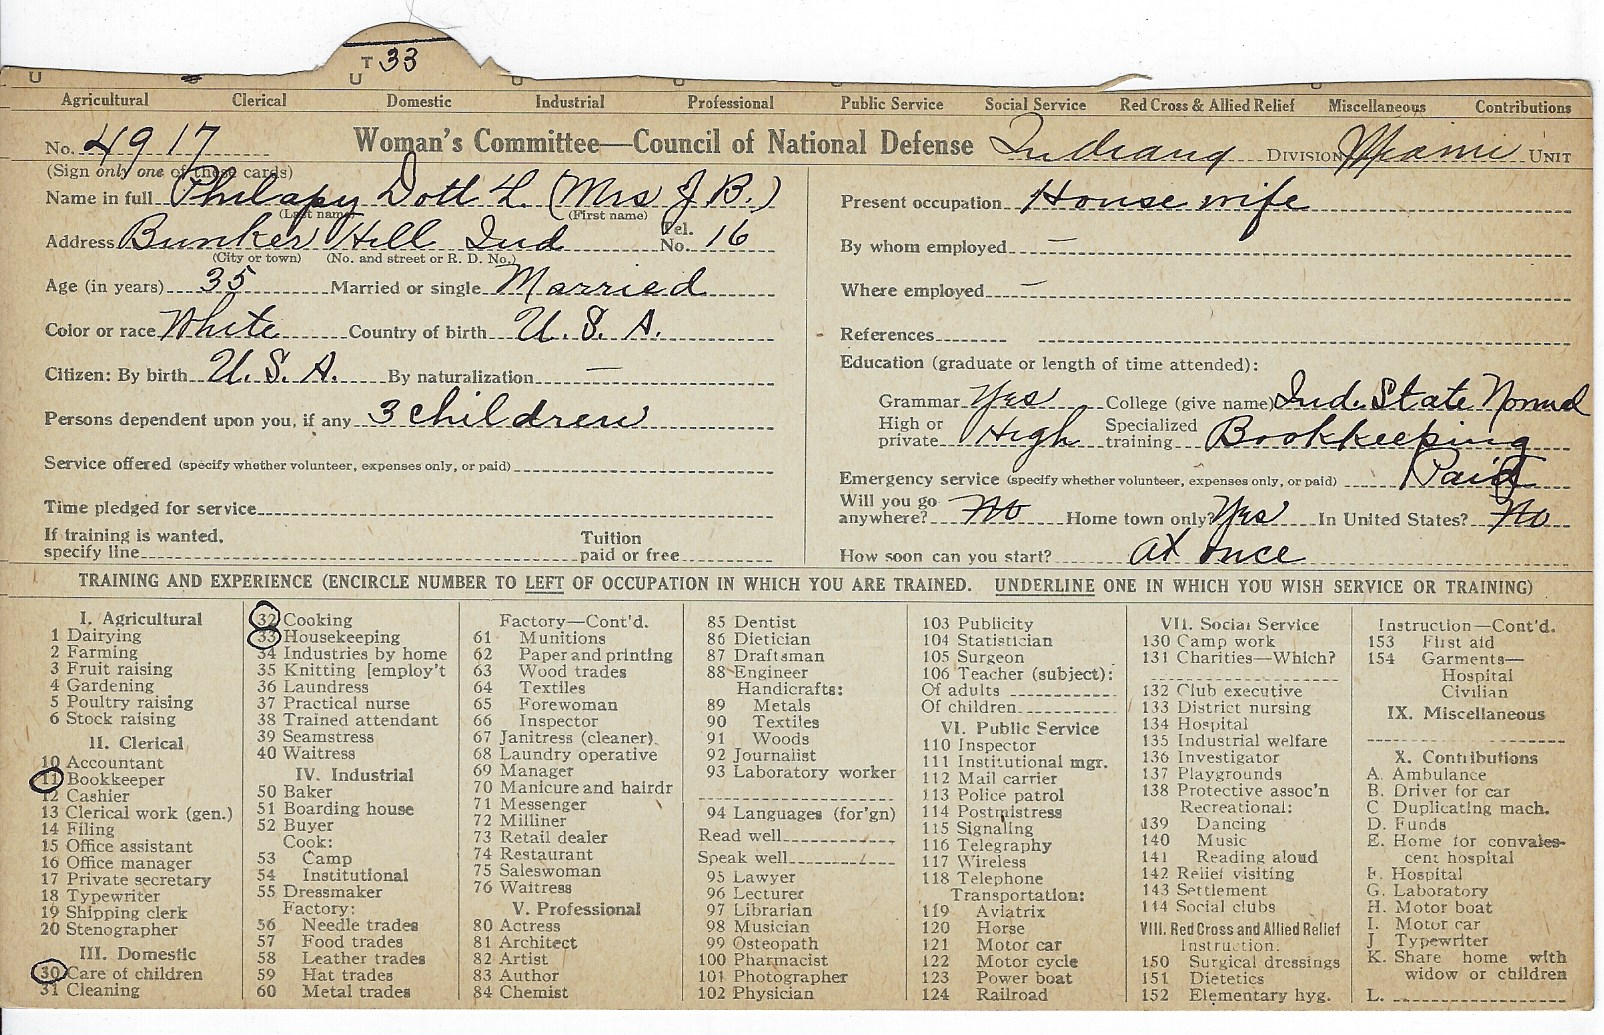 T 33
U U U U U U U
Agricultural Clerical Domestic Industrial Professional Public Service Social Service Red Cross & Allied Relief Miscellaneous Contributions
No. 4917 Woman's Committee—Council of National Defense Indiana DIVISION Miami UNIT
(Sign only one of these cards)
Name in full Philapy Dott L. (Mrs J B.)
(Last name) (First name)
Address Bunker Hill Ind Tel. No. 16
(City or town) (No. and street or R. D. No.)
Age (in years) 35 Married or single Married
Color or race White Country of birth U. S. A.
Citizen: By birth U. S. A. By naturalization —
Persons dependent upon you, if any 3 children
Service offered (specify whether volunteer, expenses only, or paid)
Time pledged for service
If training is wanted, specify line Tuition paid or free
Present occupation House wife
By whom employed —
Where employed —
References
Education (graduate or length of time attended):
Grammar Yes College (give name) Ind. State Normal
High or private High Specialized training Bookkeeping
Emergency service (specify whether volunteer, expenses only, or paid) Paid
Will you go anywhere? No Home town only? Yes In United States? No
How soon can you start? at once
TRAINING AND EXPERIENCE (ENCIRCLE NUMBER TO LEFT OF OCCUPATION IN WHICH YOU ARE TRAINED. UNDERLINE ONE IN WHICH YOU WISH SERVICE OR TRAINING)
I. Agricultural
1 Dairying
2 Farming
3 Fruit raising
4 Gardening
5 Poultry raising
6 Stock raising
II. Clerical
10 Accountant
11 Bookkeeper
12 Cashier
13 Clerical work (gen.)
14 Filing
15 Office assistant
16 Office manager
17 Private secretary
18 Typewriter
19 Shipping clerk
20 Stenographer
III. Domestic
30 Care of children
31 Cleaning
32 Cooking
33 Housekeeping
34 Industries by home
35 Knitting [employ't
36 Laundress
37 Practical nurse
38 Trained attendant
39 Seamstress
40 Waitress
IV. Industrial
50 Baker
51 Boarding house
52 Buyer
Cook:
53 Camp
54 Institutional
55 Dressmaker
Factory:
56 Needle trades
57 Food trades
58 Leather trades
59 Hat trades
60 Metal trades
Factory—Cont'd.
61 Munitions
62 Paper and printing
63 Wood trades
64 Textiles
65 Forewoman
66 Inspector
67 Janitress (cleaner)
68 Laundry operative
69 Manager
70 Manicure and hairdr
71 Messenger
72 Milliner
73 Retail dealer
74 Restaurant
75 Saleswoman
76 Waitress
V. Professional
80 Actress
81 Architect
82 Artist
83 Author
84 Chemist
85 Dentist
86 Dietician
87 Draftsman
88 Engineer
Handicrafts:
89 Metals
90 Textiles
91 Woods
92 Journalist
93 Laboratory worker
94 Languages (for'gn)
Read well
Speak well
95 Lawyer
96 Lecturer
97 Librarian
98 Musician
99 Osteopath
100 Pharmacist
101 Photographer
102 Physician
103 Publicity
104 Statistician
105 Surgeon
106 Teacher (subject):
Of adults
Of children
VI. Public Service
110 Inspector
111 Institutional mgr.
112 Mail carrier
113 Police patrol
114 Postmistress
115 Signaling
116 Telegraphy
117 Wireless
118 Telephone
Transportation:
119 Aviatrix
120 Horse
121 Motor car
122 Motor cycle
123 Power boat
124 Railroad
VII. Social Service
130 Camp work
131 Charities—Which?
132 Club executive
133 District nursing
134 Hospital
135 Industrial welfare
136 Investigator
137 Playgrounds
138 Protective assoc'n
Recreational:
139 Dancing
140 Music
141 Reading aloud
142 Relief visiting
143 Settlement
144 Social clubs
VIII. Red Cross and Allied Relief
Instruction:
150 Surgical dressings
151 Dietetics
152 Elementary hyg.
Instruction—Cont'd.
153 First aid
154 Garments—
Hospital
Civilian
IX. Miscellaneous
X. Contributions
A. Ambulance
B. Driver for car
C Duplicating mach.
D. Funds
E. Home for convales-
cent hospital
F. Hospital
G. Laboratory
H. Motor boat
I. Motor car
J Typewriter
K. Share home with
widow or children
L.